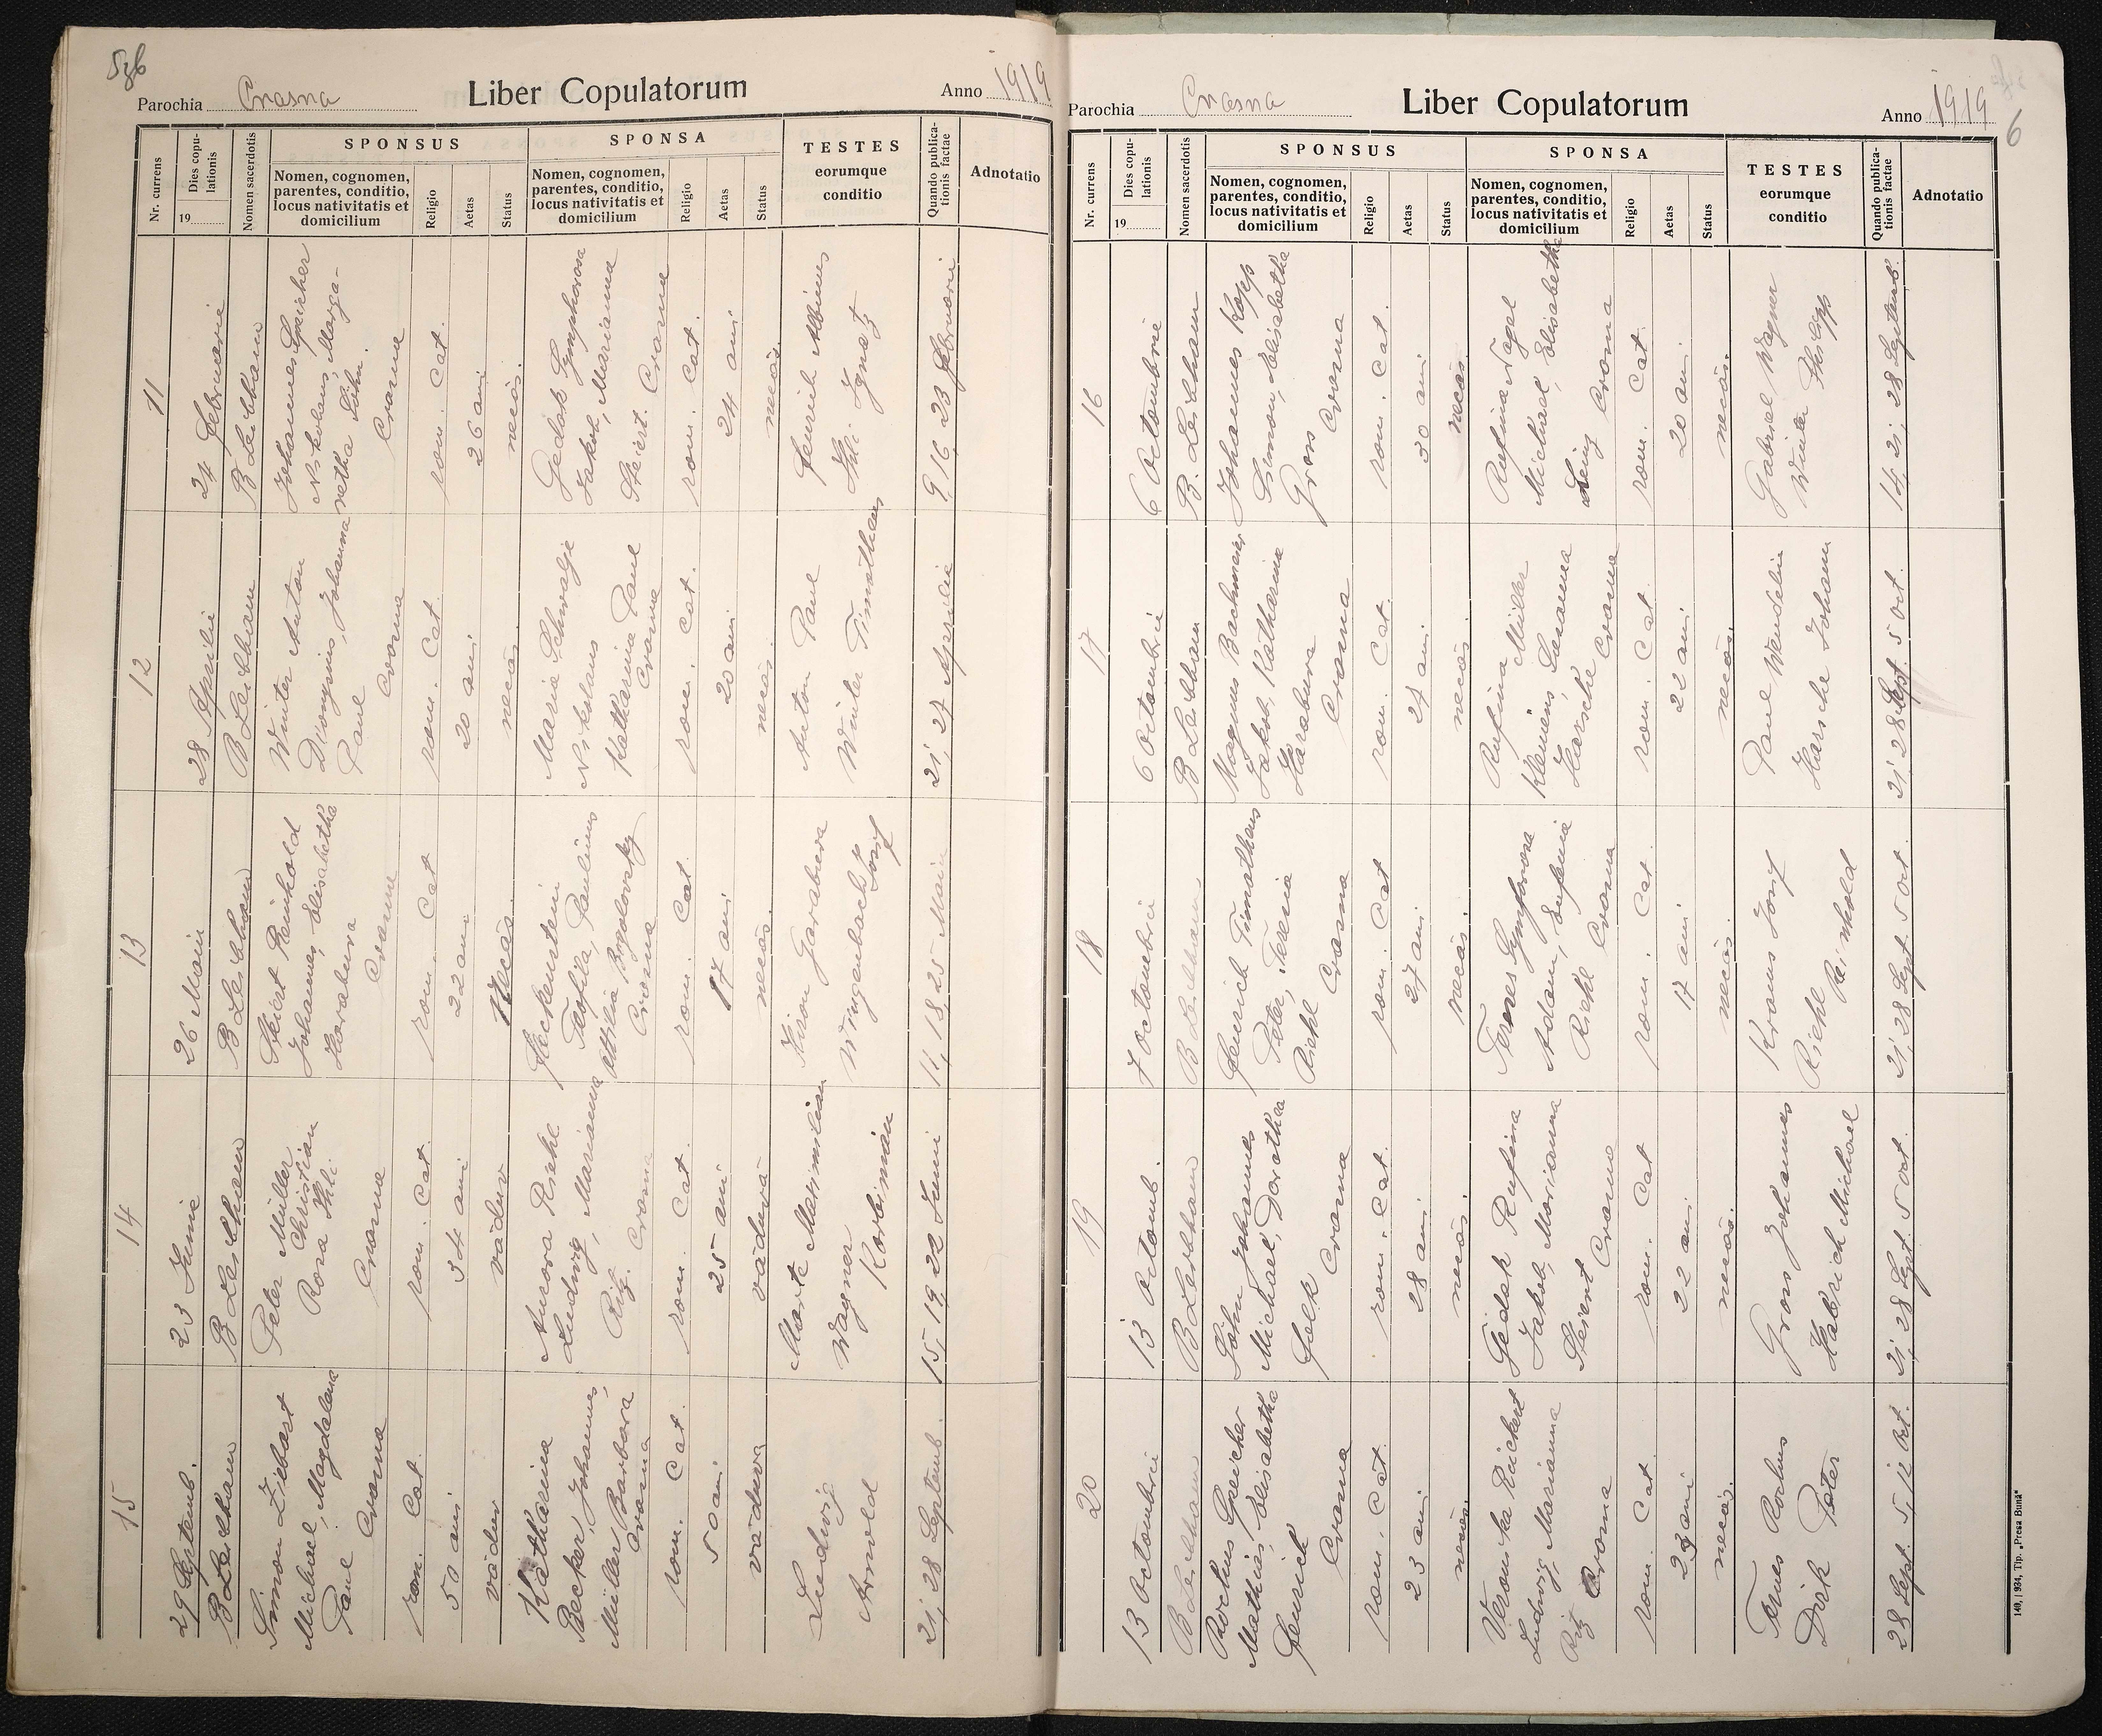 5zb
Parochia Crasna Liber Copulatorum Anno 1919
Nr. currens
Dies copu-
lationis
19
Nomen sacerdotis
SPONSUS
Nomen, cognomen,
parentes, conditio,
locus nativitatis et
domicilium
Religio
Aetas
Status
SPONSA
Nomen, cognomen,
parentes, conditio,
locus nativitatis et
domicilium
Religio
Aetas
Status
TESTES
eorumque
conditio
Quando publica-
tionis factae
Adnotatio
11
24 Februarie
B Leibham
Johannes Speicher
Nikolaus, Marga-
retha Söhn.
Crasna
rom. Cat.
26 ani
necăs.
Gedak Symphorosa
Jakob, Marianna
Steiert. Crasna
rom. Cat.
24 ani
necăs.
Heinrich Albinus
Ihli Ignatz
9, 16, 23 Februarie
12
28 Aprilie
B Leibham
Winter Anton
Dionysius, Johanna
Paul
Crasna
rom. Cat.
20 ani
necăs.
Maria Schwalje
Nikolaus
Katharina Paul
Crasna
rom. Cat.
20 ani
necăs.
Anton Paul
Winter Timotheus
21, 27 Aprilie
13
26 Maiu
B Leibham
Steiert Reinhold
Johannes, Elisabetha
Harabura
Crasna
rom. Cat
22 ani
necăs.
Heckenstein
Teofila, Paulinus
Attilia Bogolovsky
Crasna
rom. Cat.
17 ani
necăs.
Garabura
Wingenbach Josif
11, 18, 25 Maiu
14
23 Iunie
B Leibham
Peter Müller
Christian
Rosa Ihli.
Crasna
rom. Cat.
34 ani
văduv
Aurora Riehl
Ludwig, Marianna
Ritz. Crasna
rom. Cat.
25 ani
văduvă
Marte Maximilian
Wagner
Korbinian
15, 19, 22 Iunii
15
29 Septemb.
B Leibham
Simon Ziebart
Michael, Magdalena
Paul
Crasna
rom. Cat.
50 ani
văduv
Katharina
Becker, Johannes,
Müller Barbara
Crasna
rom. Cat.
50 ani
văduva
Ludwig
Arnold
21, 28 Septemb.
Parochia Crasna Liber Copulatorum Anno 1919
6
Nr. currens
Dies copu-
lationis
19
Nomen sacerdotis
SPONSUS
Nomen, cognomen,
parentes, conditio,
locus nativitatis et
domicilium
Religio
Aetas
Status
SPONSA
Nomen, cognomen,
parentes, conditio,
locus nativitatis et
domicilium
Religio
Aetas
Status
TESTES
eorumque
conditio
Quando publica-
tionis factae
Adnotatio
16
6 Octombrie
B. Leibham
Johannes Kopp
Simon, Elisabetha
Gross
Crasna
rom. Cat.
30 ani
necăs.
Rufina Nagel
Michael, Elisabetha
Leinz Crasna
rom. Cat.
20 ani.
necăs.
Gabriel Wagner
Winter Philipp
14, 21, 28 Septemb.
17
6 Octombrie
B Leibham
Magnus Bachmeier
Jakob, Katharina
Harabura
Crasna
rom. Cat.
27 ani.
necăs.
Rufina Müller
Klemens, Susanna
Harsche Crasna
rom. Cat.
22 ani
necăs.
Paul Wendelin
Harsche Johann
21, 28 Sept. 5 Oct.
18
7 Octombrie
B Leibham
Heinrich Timotheus
Peter, Teresia
Riehl Crasna
rom. Cat
27 ani
necăs.
Ternes Symforosa
Adam, Eufemia
Riehl Crasna
rom. Cat.
17 ani
necăs.
Kraus Josif
Riehl Reinhold
21, 28 Sept. 5 Oct.
19
13 Octomb.
B Leibham
Söhn Johannes
Michael, Dorothea
Folk
Crasna
rom. Cat.
28 ani
necăs.
Gedak Rufina
Jakob, Marianna
Steiert Crasna
rom. Cat
22 ani.
necăs.
Gross Johannes
Habrich Michael
21, 28 Sept. 5 Oct.
20
13 Octombrie
B Leibham
Rochus Speicher
Mathias, Elisabetha
Heinrich
Crasna
rom. Cat.
23 ani.
necăs.
Veronika Rückert
Ludwig Marianna
Ritz Crasna
rom. Cat.
23 ani
necăs.
Ternes Rochus
Dirk Peter
28 Sept. 5, 12 Oct.
140, | 934, Tip. „Presa Bună"